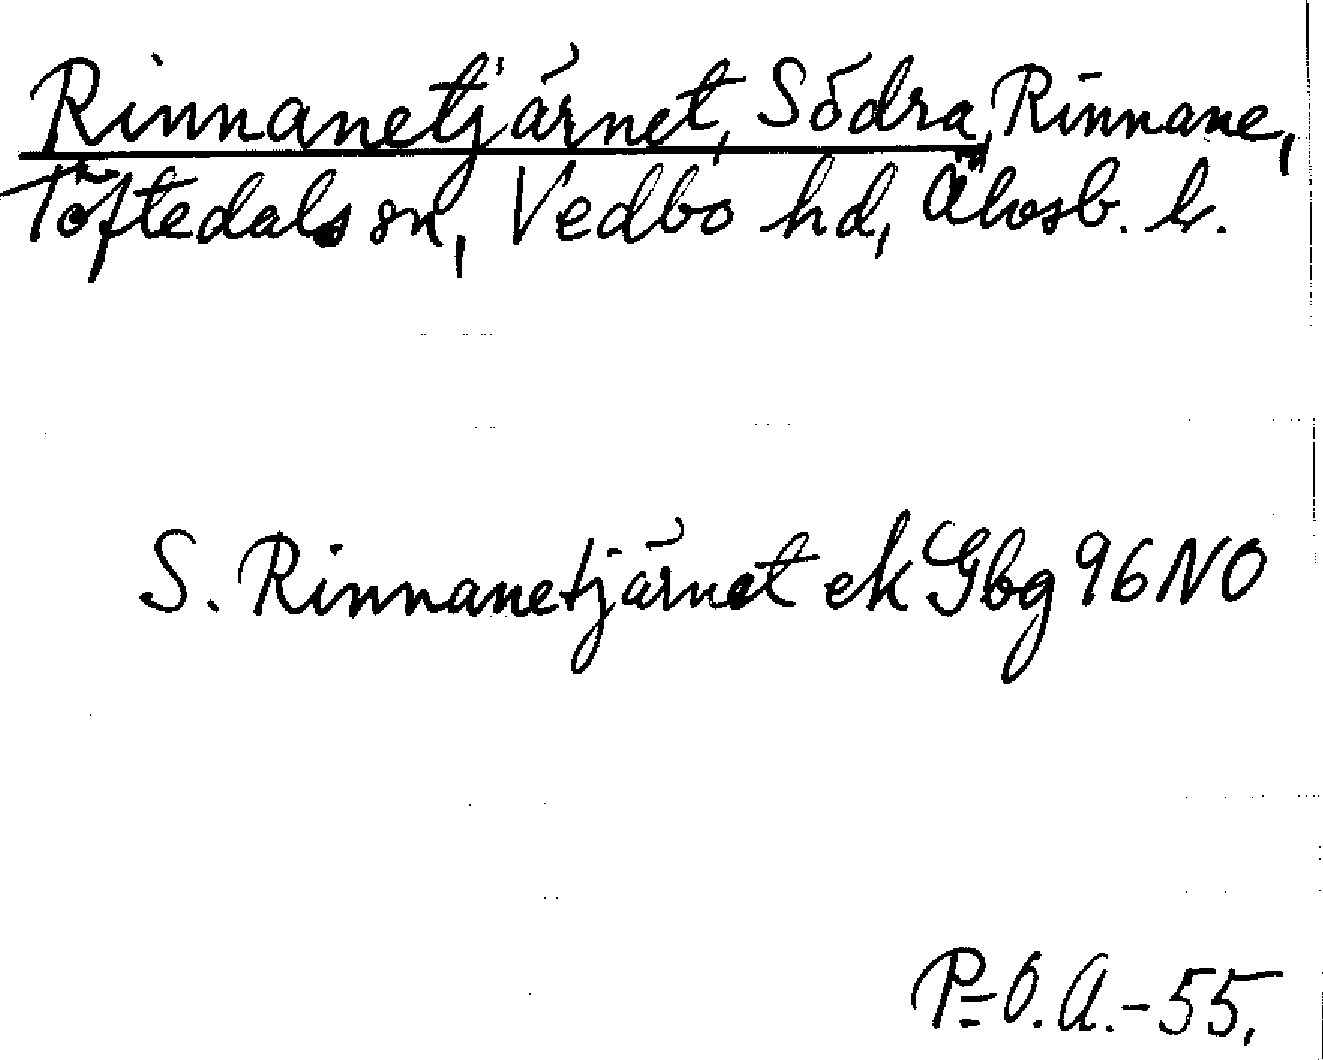 Rinnanetjärnet, Södra, Rinnane,
Töftedals sn, Vedbo hd, Älvsb. l.
S. Rinnanetjärnet ek Gbg 96 NO
P-O.A.-55.